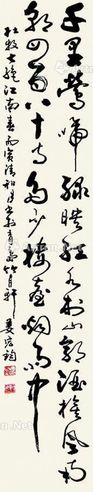 千里鶯啼綠映紅水村山郭酒旗風南
朝四百八十寺多少樓臺烟雨中
杜牧七絕江南春丙寅清和月